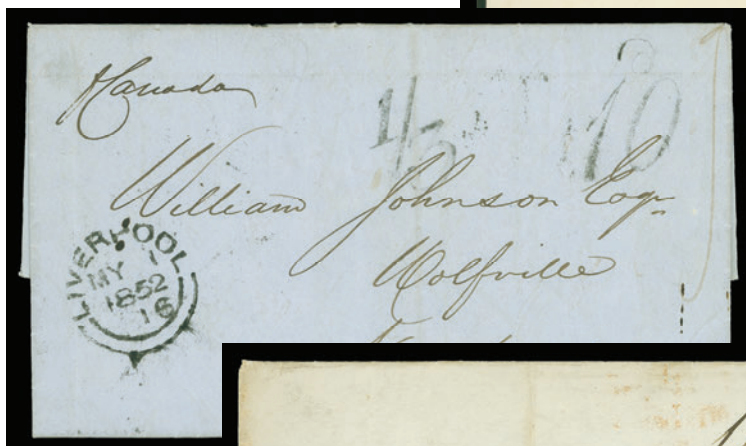 Canada
1/3 10
William Johnson Esqr
Wolfville
LIVERPOOL
MY 1
1852
16